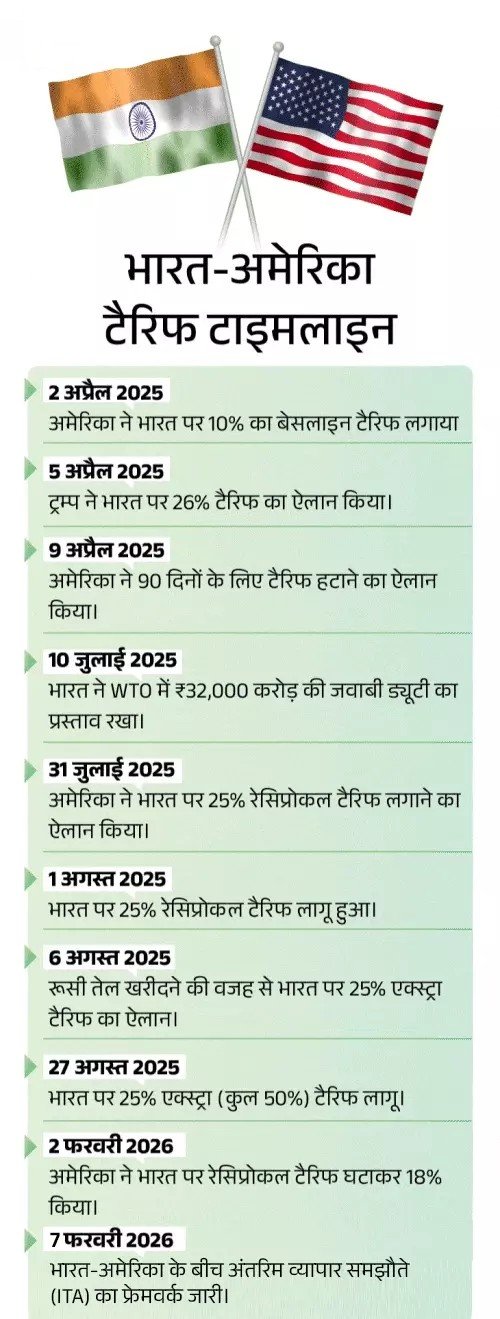 भारत-अमेरिका
टैरिफ टाइमलाइन
2 अप्रैल 2025
अमेरिका ने भारत पर 10% का बेसलाइन टैरिफ लगाया
5 अप्रैल 2025
ट्रम्प ने भारत पर 26% टैरिफ का ऐलान किया।
9 अप्रैल 2025
अमेरिका ने 90 दिनों के लिए टैरिफ हटाने का ऐलान
किया।
10 जुलाई 2025
भारत ने WTO में ₹32,000 करोड़ की जवाबी ड्यूटी का
प्रस्ताव रखा।
31 जुलाई 2025
अमेरिका ने भारत पर 25% रेसिप्रोकल टैरिफ लगाने का
ऐलान किया।
1 अगस्त 2025
भारत पर 25% रेसिप्रोकल टैरिफ लागू हुआ।
6 अगस्त 2025
रूसी तेल खरीदने की वजह से भारत पर 25% एक्स्ट्रा
टैरिफ का ऐलान।
27 अगस्त 2025
भारत पर 25% एक्स्ट्रा (कुल 50%) टैरिफ लागू।
2 फरवरी 2026
अमेरिका ने भारत पर रेसिप्रोकल टैरिफ घटाकर 18%
किया।
7 फरवरी 2026
भारत-अमेरिका के बीच अंतरिम व्यापार समझौते
(ITA) का फ्रेमवर्क जारी।